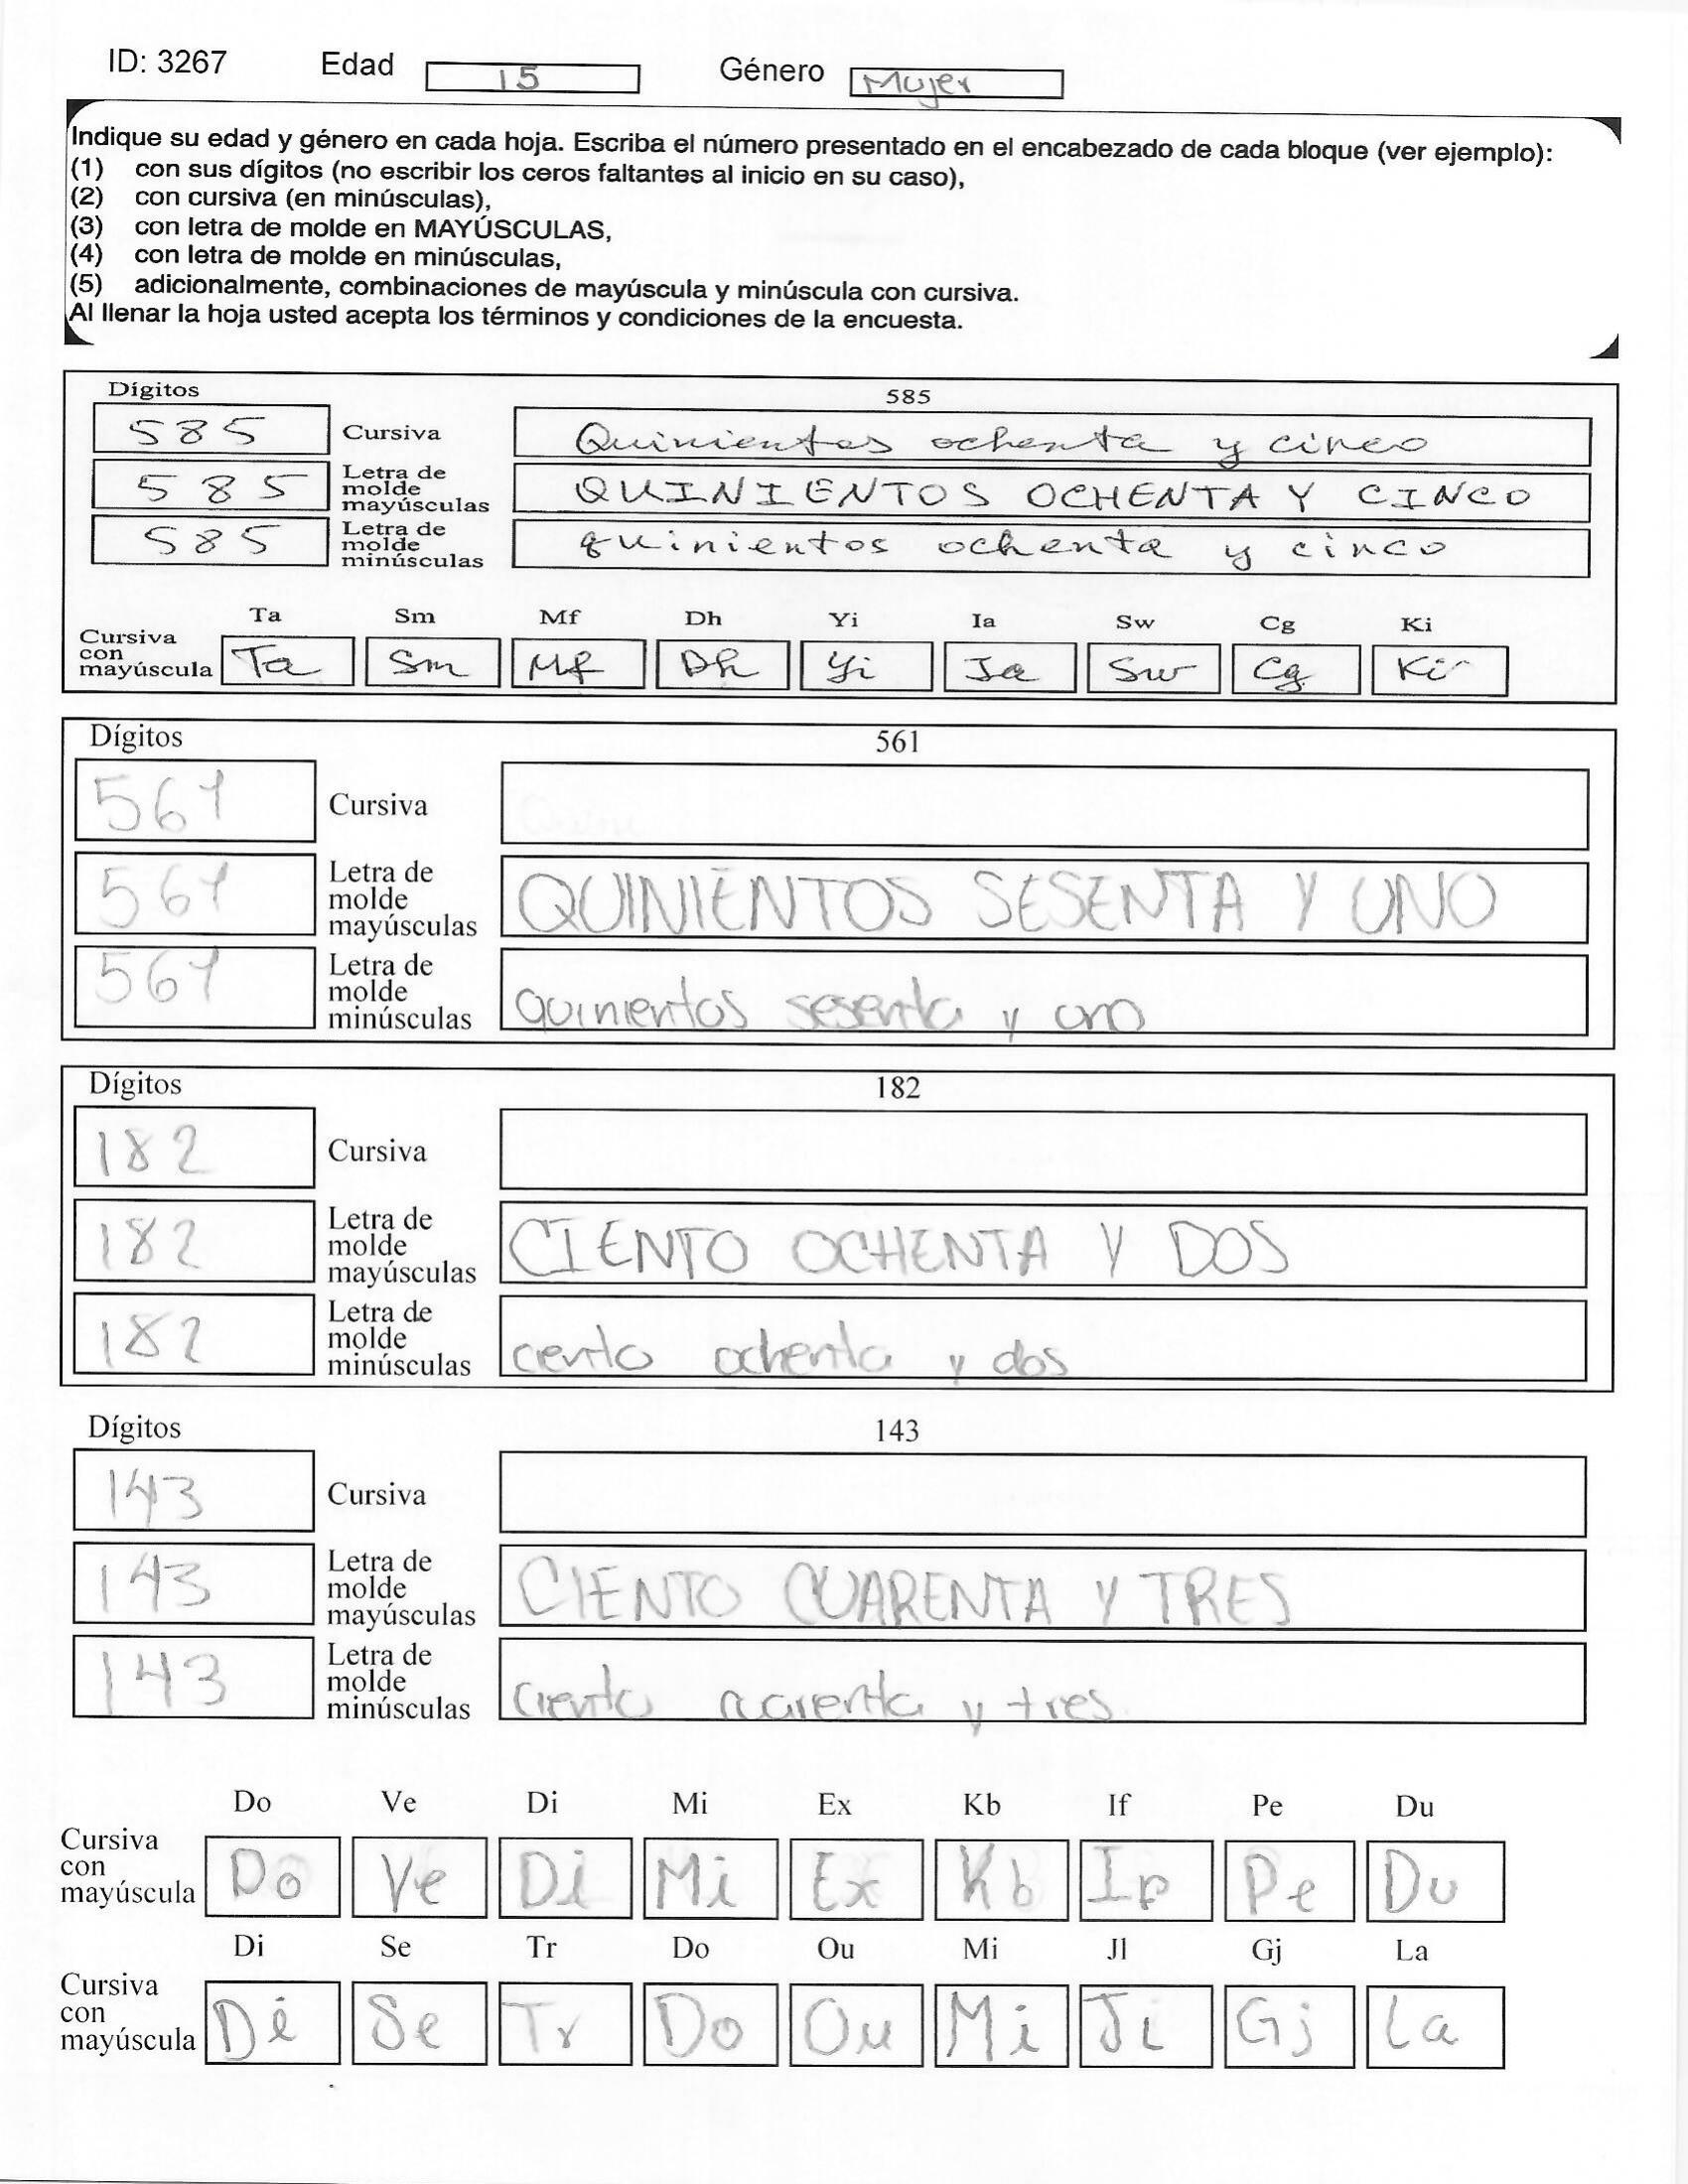 ID: 3267 Edad 15 Género Mujer
Indique su edad y género en cada hoja. Escriba el número presentado en el encabezado de cada bloque (ver ejemplo):
(1) con sus dígitos (no escribir los ceros faltantes al inicio en su caso),
(2) con cursiva (en minúsculas),
(3) con letra de molde en MAYÚSCULAS,
(4) con letra de molde en minúsculas,
(5) adicionalmente, combinaciones de mayúscula y minúscula con cursiva.
Al llenar la hoja usted acepta los términos y condiciones de la encuesta.
Dígitos 585
585 Cursiva Quinientos ochenta y cinco
585 Letra de molde mayúsculas QUINIENTOS OCHENTA Y CINCO
585 Letra de molde minúsculas quinientos ochenta y cinco
Ta Sm Mf Dh Yi Ia Sw Cg Ki
Cursiva con mayúscula Ta Sm Mf Dh Yi Ia Sw Cg Ki
Dígitos 561
561 Cursiva
561 Letra de molde mayúsculas QUINIENTOS SESENTA Y UNO
561 Letra de molde minúsculas quinientos sesenta y uno
Dígitos 182
182 Cursiva
182 Letra de molde mayúsculas CIENTO OCHENTA Y DOS
182 Letra de molde minúsculas ciento ochenta y dos
Dígitos 143
143 Cursiva
143 Letra de molde mayúsculas CIENTO CUARENTA Y TRES
143 Letra de molde minúsculas ciento cuarenta y tres
Do Ve Di Mi Ex Kb If Pe Du
Cursiva con mayúscula Do Ve Di Mi Ex Kb If Pe Du
Di Se Tr Do Ou Mi Jl Gj La
Cursiva con mayúscula Di Se Tr Do Ou Mi Ji Gj La